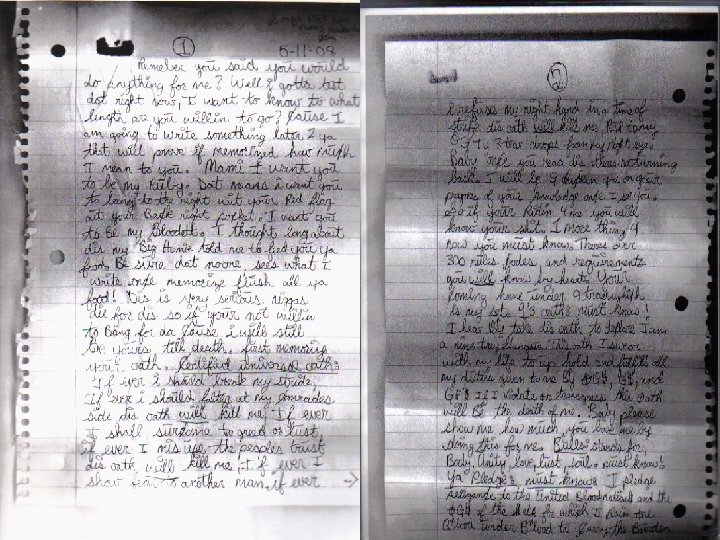 1
5-11-08
Remeber you said you would
do anything for me? Well i gotta test
dat right now, I want to know to what
length are you willin to go? Cause I
am going to write something later 2 ya
that will prove if memorized how much
I mean to you. Mami I want you
to be my Ruby. Dat means i want you
to bang to the right wit your Red flag
out your Back right pocket. I want you
to be my Bloodet. I thought long about
dis my Big Homie told me to feed you ya
food. Be sure dat noone sees what I
write once memorize flush all ya
food! Dis is very serious niggas
die for dis so if your not willin
to Bang for da Cause i will still
be yours till death. first memorize
your oath. Certified universal oath:
If ever i should break my stride,
If ever i should falter at my comrades
side dis oath will kill me, If ever
I shall surcome to greed or lust,
if ever I misuse the peoples trust
dis oath will kill me, If ever I
show fear to another man, if ever
2
i refuse my right hand in a time of
strife dis oath will kill me
drops from my right eye.
Baby once you read dis theres no turning
back. I will be explain you
papers of your knowledge once I see you.
if your Reppin me you will
know your shit. 1 more thing
now you must know. Theres over
300 rules, codes, and requirements
you will know by heart. Your
coming home under
is my set must know!
I hear by take dis oath to declare I am
a nine tray gangsta. This oath I swear
with my life to up hold and fulfill all
my duties given to me by and
If I violate or transgress this oath
will be the death of me. Baby please
show me how much you love me by
doing this for me. stands for,
Baby, Unity love, lust, soul. must know!
Ya Pledge must know: I pledge
allegiance to the United Bloodnation and the
of the for which I
Blood under Blood to carry the Burden